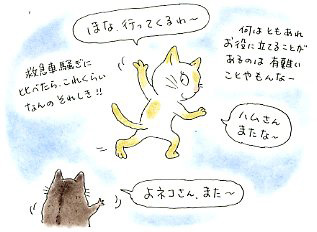 ほな、行ってくるわ〜
何はともあれ
お役に立てることが
あるのは 有難い
ことやもんな〜
救急車騒ぎに
比べたら、これくらい
なんの それしき!!
ハムさん
またな〜
よネコさん、また〜